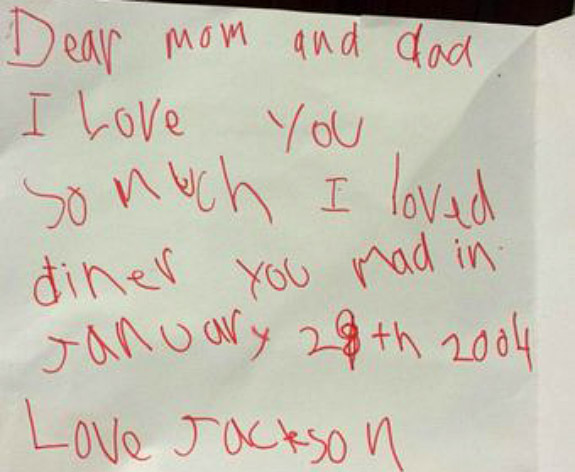 Dear mom and dad
I Love you
so nuch I loved
diner you mad in
January 28th 2004
Love Jackson